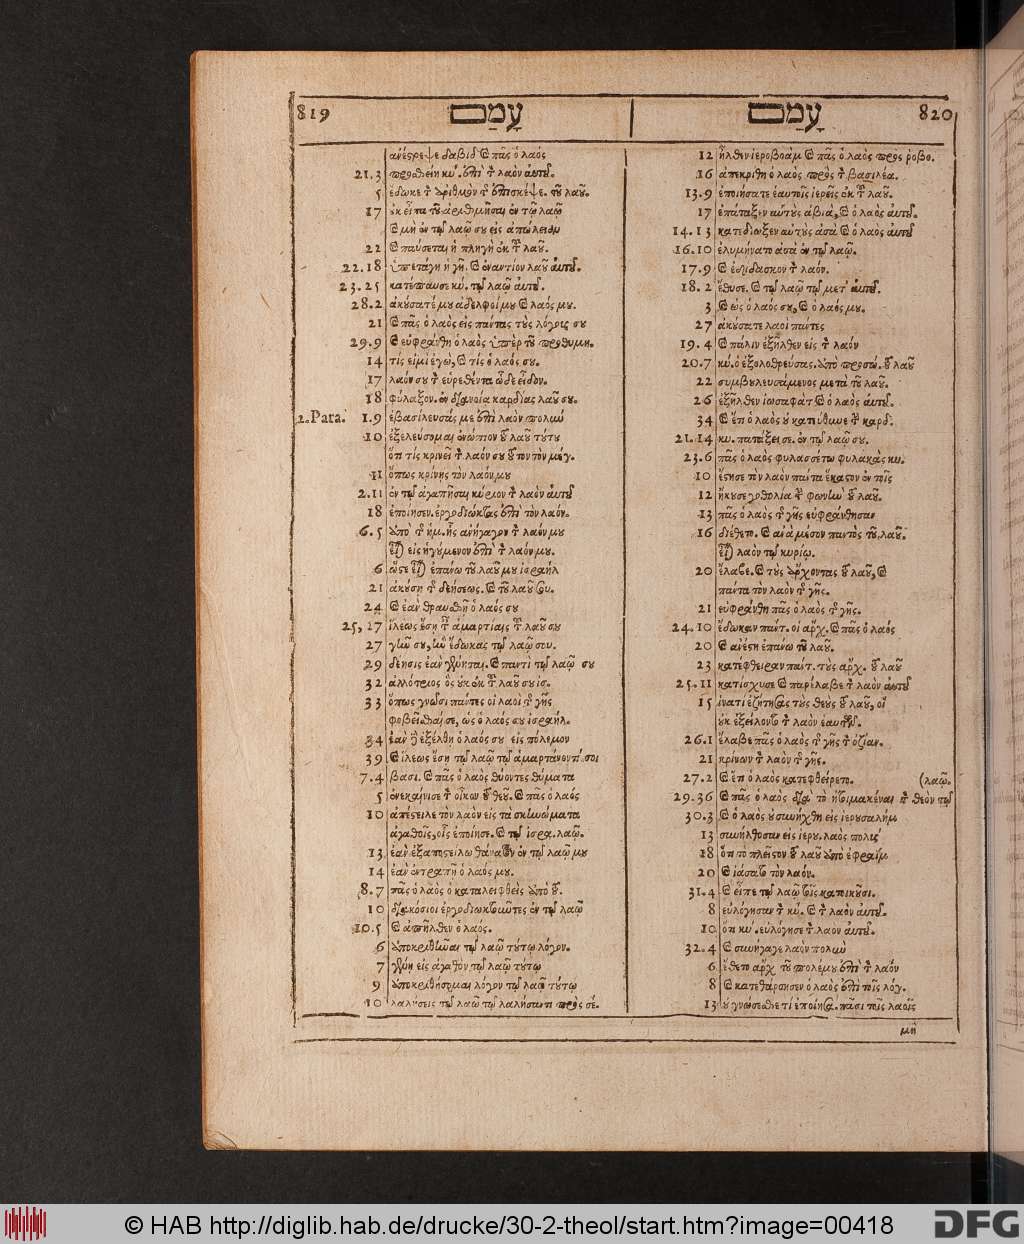 819 עָמַם עָמַם 820
ἀνέςρεψε δαβὶδ καὶ πᾶς ὁ λαός
21.3 προσθείη κύ. ἐπὶ τ λαὸν αὐτοῦ.
5 ἔδωκε τ ἀριθμὸν τ ἐπισκέψε. τοῦ λαοῦ.
17 οὐκ εἶπα τοῦ ἀριθμῆσαι ἐν τῷ λαῷ
καὶ μὴ ἐν τῷ λαῷ σου εἰς ἀπώλειαν
22 καὶ παύσεται ἡ πληγὴ ἐκ τ λαοῦ.
22.18 ὑπετάγη ἡ γῆ. καὶ ἐναντίον λαοῦ αὐτοῦ.
23.25 κατέπαυσε κύ. τῷ λαῷ αὐτοῦ.
28.2 ἀκούσατέ μου ἀδελφοί μου καὶ λαός μου.
21 καὶ πᾶς ὁ λαὸς εἰς πάντας τοὺς λόγους σου
29.9 καὶ εὐφράνθη ὁ λαὸς ὑπὲρ τοῦ προθυμη.
14 τίς εἰμι ἐγώ, καὶ τίς ὁ λαός σου.
17 λαόν σου τ εὑρεθέντα ὧδε εἶδον.
18 φύλαξον. ἐν διανοίᾳ καρδίας λαοῦ σου.
2. Para. 1.9 ἐβασίλευσάς με ἐπὶ λαὸν πολὺν
10 ἐξελεύσομαι ἐνώπιον τοῦ λαοῦ τούτου
ὅτι τίς κρινεῖ τ λαόν σου τοῦτον τὸν μέγ.
11 ὅπως κρίνῃς τὸν λαόν μου
2.11 ἐν τῷ ἀγαπῆσαι κύριον τ λαὸν αὐτοῦ
18 ἐποίησεν. ἐργοδιώκτας ἐπὶ τὸν λαόν.
6.5 ἀπὸ τ ἡμ. ἧς ἀνήγαγον τ λαόν μου
εἶναι εἰς ἡγούμενον ἐπὶ τ λαόν μου.
6 ὥςε εἶναι ἐπάνω τοῦ λαοῦ μου ἰσραὴλ
21 ἀκούσῃ τ δεήσεως. καὶ τοῦ λαοῦ σου.
24 καὶ ἐὰν θραυσθῇ ὁ λαός σου
25, 27 ἵλεως ἔσῃ τ ἁμαρτίαις τ λαοῦ σου
27 γῆν σου, ἣν ἔδωκας τῷ λαῷ σου.
29 δέησις ἐὰν γένηται. καὶ παντὶ τῷ λαῷ σου
32 ἀλλότριος ὃς οὐκ ἐκ τ λαοῦ σου ἰσ.
33 ὅπως γνῶσι πάντες οἱ λαοὶ τ γῆς
φοβεῖσθαί σε, ὡς ὁ λαός σου ἰσραήλ.
34 ἐὰν δὲ ἐξέλθῃ ὁ λαός σου εἰς πόλεμον
39 καὶ ἵλεως ἔσῃ τῷ λαῷ τῷ ἁμαρτάνοντί σοι
7.4 βασι. καὶ πᾶς ὁ λαὸς θύοντες θύματα
5 ἐνεκαίνισε τ οἶκον τοῦ θεοῦ. καὶ πᾶς ὁ λαός
10 ἀπέςειλε τὸν λαὸν εἰς τὰ σκηνώματα
ἀγαθοῖς, οἷς ἐποίησε. καὶ τῷ ἰσρα. λαῷ.
13 ἐὰν ἐξαποςείλω θάνατον ἐν τῷ λαῷ μου
14 ἐὰν ἐντραπῇ ὁ λαός μου.
8.7 πᾶς ὁ λαὸς ὁ καταλειφθεὶς ἀπὸ τοῦ.
10 διακόσιοι ἐργοδιωκτοῦντες ἐν τῷ λαῷ
10.5 καὶ ἀπῆλθεν ὁ λαός.
6 ἀποκριθῆναι τῷ λαῷ τούτῳ λόγον.
7 γένῃ εἰς ἀγαθὸν τῷ λαῷ τούτῳ
9 ἀποκριθήσομαι λόγον τῷ λαῷ τούτῳ
10 λαλήσεις τῷ λαῷ τῷ λαλήσαντι πρὸς σέ.
12 ἦλθεν ἱεροβοὰμ καὶ πᾶς ὁ λαὸς πρὸς ῥοβο.
16 ἀπεκρίθη ὁ λαὸς πρὸς τ βασιλέα.
13.9 ἐποιήσατε ἑαυτοῖς ἱερεῖς ἐκ τ λαοῦ.
17 ἐπάταξεν αὐτοὺς ἀβιὰ, καὶ ὁ λαὸς αὐτοῦ.
14.13 κατεδίωξεν αὐτοὺς ἀσὰ καὶ ὁ λαὸς αὐτοῦ
16.10 ἐλυμήνατο ἀσὰ ἐν τῷ λαῷ.
17.9 καὶ ἐδίδασκον τ λαόν.
18.2 ἔθυσε. καὶ τῷ λαῷ τῷ μετ' αὐτοῦ.
3 καὶ ὡς ὁ λαός σου, καὶ ὁ λαός μου.
27 ἀκούσατε λαοὶ πάντες
19.4 καὶ πάλιν ἐξῆλθεν εἰς τ λαὸν
20.7 κύ. ὁ ἐξολοθρεύσας. ἀπὸ προσώ. τοῦ λαοῦ
22 συμβουλευσάμενος μετὰ τοῦ λαοῦ.
26 ἐξῆλθεν ἰωσαφὰτ καὶ ὁ λαὸς αὐτοῦ.
34 καὶ ἔτι ὁ λαὸς οὐ κατεύθυνε τ καρδ.
21.14 κυ. πατάξει σε. ἐν τῷ λαῷ σου.
23.6 πᾶς ὁ λαὸς φυλασσέτω φυλακὰς κυ.
10 ἔςησε τὸν λαὸν πάντα ἕκαςον ἐν τοῖς
12 ἤκουσε γοθολία τ φωνὴν τοῦ λαοῦ.
13 πᾶς ὁ λαὸς τ γῆς εὐφράνθησαν
16 διέθετο. καὶ ἀνὰ μέσον παντὸς τοῦ λαοῦ.
εἶναι λαὸν τῷ κυρίῳ.
20 ἔλαβε. καὶ τοὺς ἄρχοντας τοῦ λαοῦ, καὶ
πάντα τὸν λαὸν τ γῆς.
21 εὐφράνθη πᾶς ὁ λαὸς τ γῆς.
24.10 ἔδωκαν πάντ. οἱ ἄρχ. καὶ πᾶς ὁ λαός
20 καὶ ἀνέςη ἐπάνω τοῦ λαοῦ.
23 κατέφθειραν πάντ. τοὺς ἄρχ. τοῦ λαοῦ
25.11 κατίσχυσε καὶ παρέλαβε τ λαὸν αὐτοῦ
15 ἱνατί ἐζήτησας τοὺς θεοὺς τοῦ λαοῦ, οἳ
οὐκ ἐξείλοντο τ λαὸν ἑαυτῶν.
26.1 ἔλαβε πᾶς ὁ λαὸς τ γῆς τ ὀζίαν.
21 κρίνων τ λαὸν τ γῆς.
27.2 καὶ ἔτι ὁ λαὸς κατεφθείρετο. (λαῷ.
29.36 καὶ πᾶς ὁ λαὸς διὰ τὸ ἡτοιμακέναι τ θεὸν τῷ
30.3 καὶ ὁ λαὸς οὐ συνήχθη εἰς ἱερουσαλὴμ
13 συνήλθοσαν εἰς ἱερου. λαὸς πολύς
18 ὅτι τὸ πλεῖςον τοῦ λαοῦ ἀπὸ ἐφραῒμ
20 καὶ ἰάσατο τὸν λαόν.
31.4 καὶ εἶπε τῷ λαῷ τοῖς κατοικοῦσι.
8 εὐλόγησαν τ κύ. καὶ τ λαὸν αὐτοῦ.
10 ὅτι κύ. εὐλόγησε τ λαὸν αὐτοῦ.
32.4 καὶ συνήγαγε λαὸν πολὺν
6 ἔθετο ἄρχ τοῦ πολέμου ἐπὶ τ λαόν
8 καὶ κατεθάρσησεν ὁ λαὸς ἐπὶ τοῖς λόγ.
13 οὐ γνώσεσθε τί ἐποίησα. πᾶσι τοῖς λαοῖς
μὴ
© HAB http://diglib.hab.de/drucke/30-2-theol/start.htm?image=00418 DFG